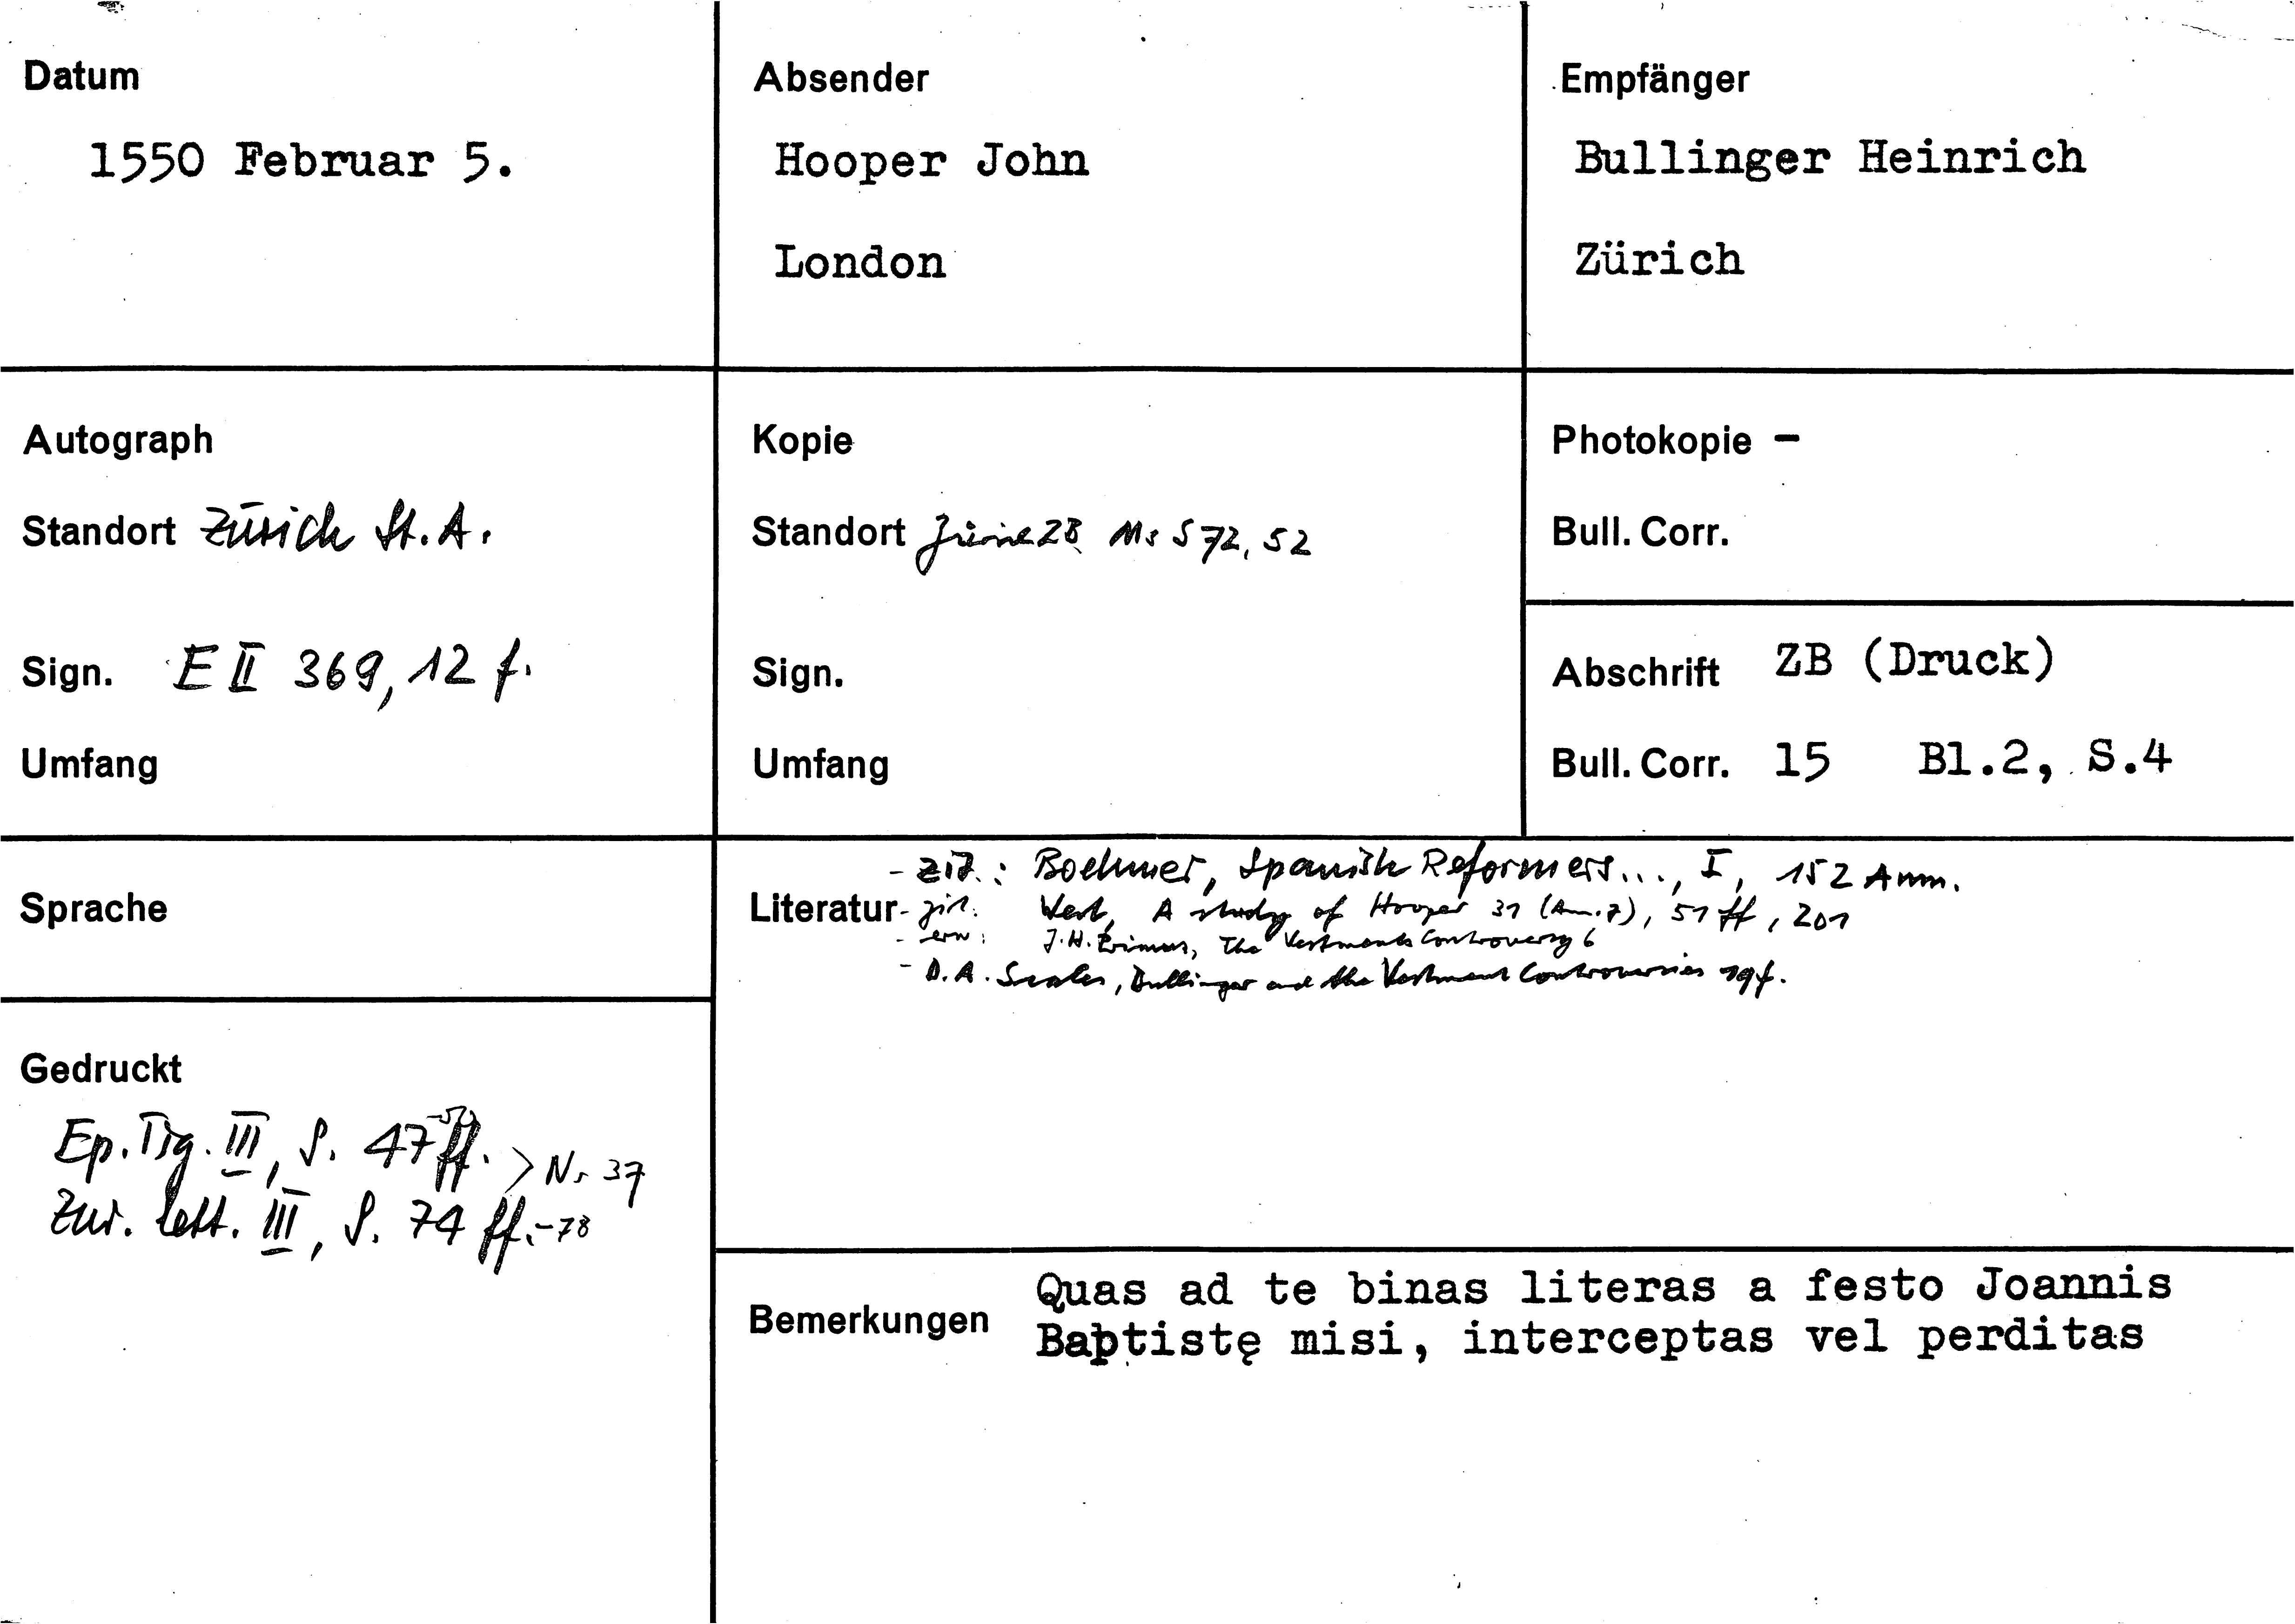 Datum
1550 Februar 5.
Absender
Hooper John
London
Empfänger
Bullinger Heinrich
Zürich
Autograph
Standort Zürich St. A.
Sign. E II 369, 12 f.
Umfang
Kopie
Standort Zürich ZB Ms S 72, 52
Sign.
Umfang
Photokopie -
Bull. Corr.
Abschrift ZB (Druck)
Bull. Corr. 15 Bl.2, S.4
Sprache
Literatur
- zit.: Boehmer, Spanish Reformers..., I, 152 Anm.
- zit.: West, A study of Hooper 31 (Anm. 7), 51 ff, 201
- erw: J.H. Primus, The Vestments Controversy 6
- D.A. Scales, Bullinger and the Vestment Controversies 19f.
Gedruckt
Ep. Tig. III, S. 47 ff. > Nr 37
Zur. lett. III, S. 74 ff. -78
Bemerkungen
Quas ad te binas literas a festo Joannis
Baptistę misi, interceptas vel perditas